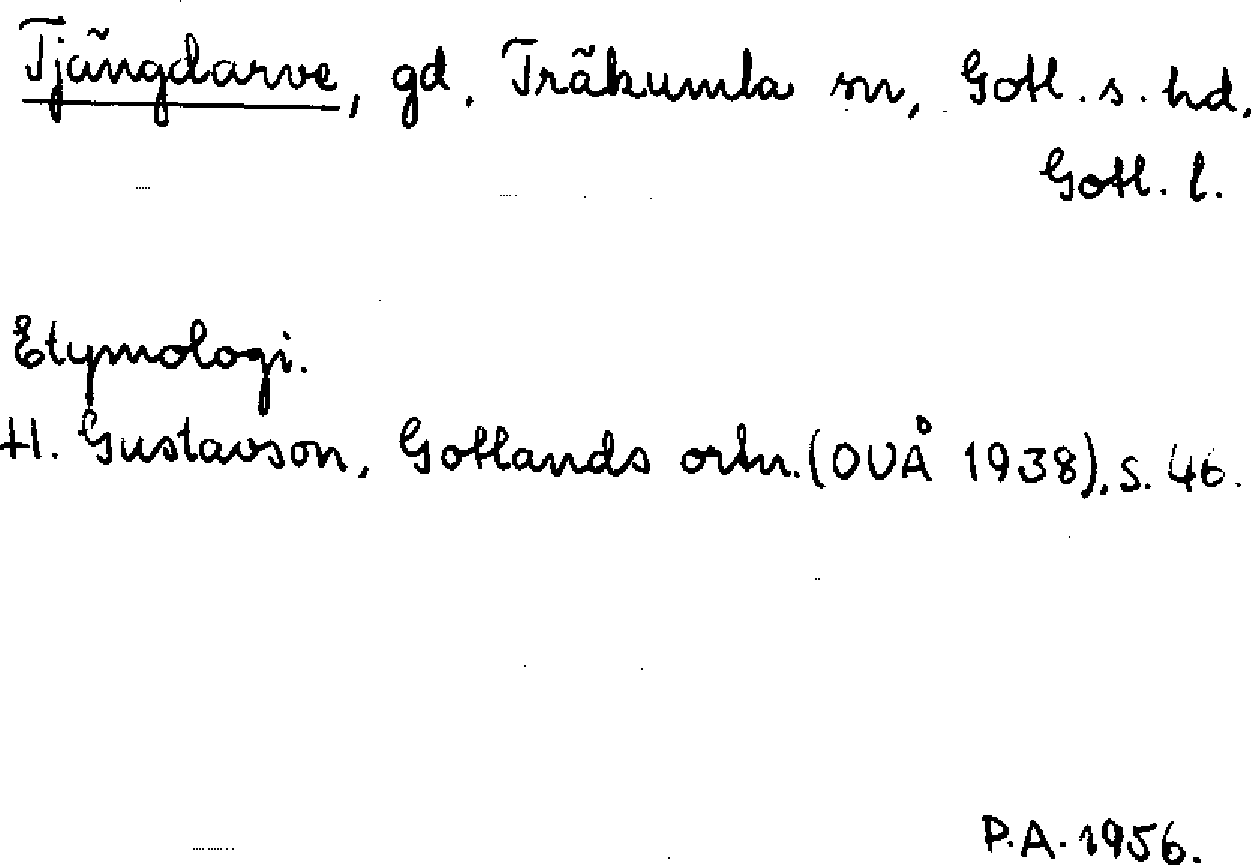 Tjängdarve, gd. Träkumla sn, Gotl. s. hd.
Gotl. l.
Etymologi.
H. Gustavson, Gotlands ortn. (OUÅ 1938), s. 46.
P.A. 1956.